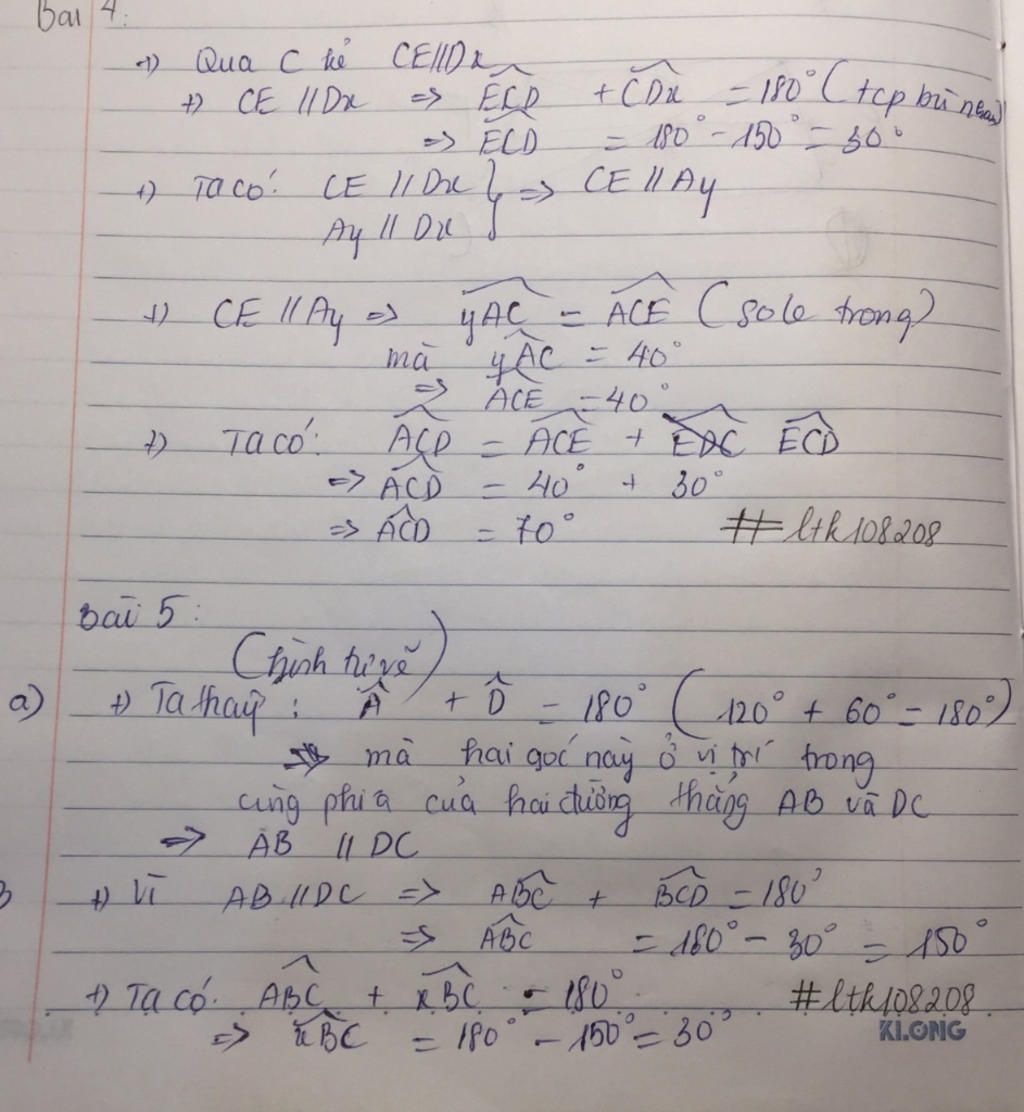 Bài 4:
+) Qua C kẻ CE//Dx
+) CE // Dx => ECD + CDx = 180° (tcp bù nhau)
=> ECD = 180° - 150° = 30°
+) Ta có: CE // Dx } => CE // Ay
Ay // Dx
+) CE // Ay => yAC = ACE (sole trong)
mà yAC = 40°
=> ACE = 40°
+) Ta có: ACD = ACE + EDC ECD
=> ACD = 40° + 30°
=> ACD = 70° #ltk108208
Bài 5:
(hình tự vẽ)
a) +) Ta thấy: Â + D̂ = 180° (120° + 60° = 180°)
=> mà hai góc này ở vị trí trong
cùng phía của hai đường thẳng AB và DC
=> AB // DC
+) Vì AB // DC => ABC + BCD = 180°
=> ABC = 180° - 30° = 150°
+) Ta có: ABC + xBC = 180° #ltk108208
=> xBC = 180° - 150° = 30° KLONG